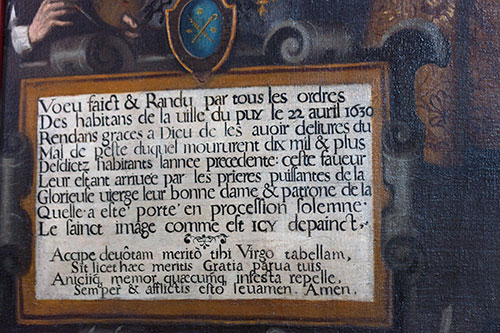 Voeu faict & Randu par tous les ordres
Des habitans de la uille du puy le 22 auril 1630
Rendans graces a Dieu de les auoir deliures du
Mal de peste duquel moururent dix mil & plus
Desdictz habitants lannee precedente: ceste faueur
Leur estant arriuee par les prieres puissantes de la
Glorieuse uierge leur bonne dame & patrone de la
Quelle a esté porté en procession solemne
Le sainct image comme est ICY depainct.
Accipe deuôtam merito tibi Virgo tabellam,
Sit licet haec meritis Gratia parua tuis.
Aniciiq memor quaecumq infesta repelle,
Semper & afflictis esto leuamen. Amen.